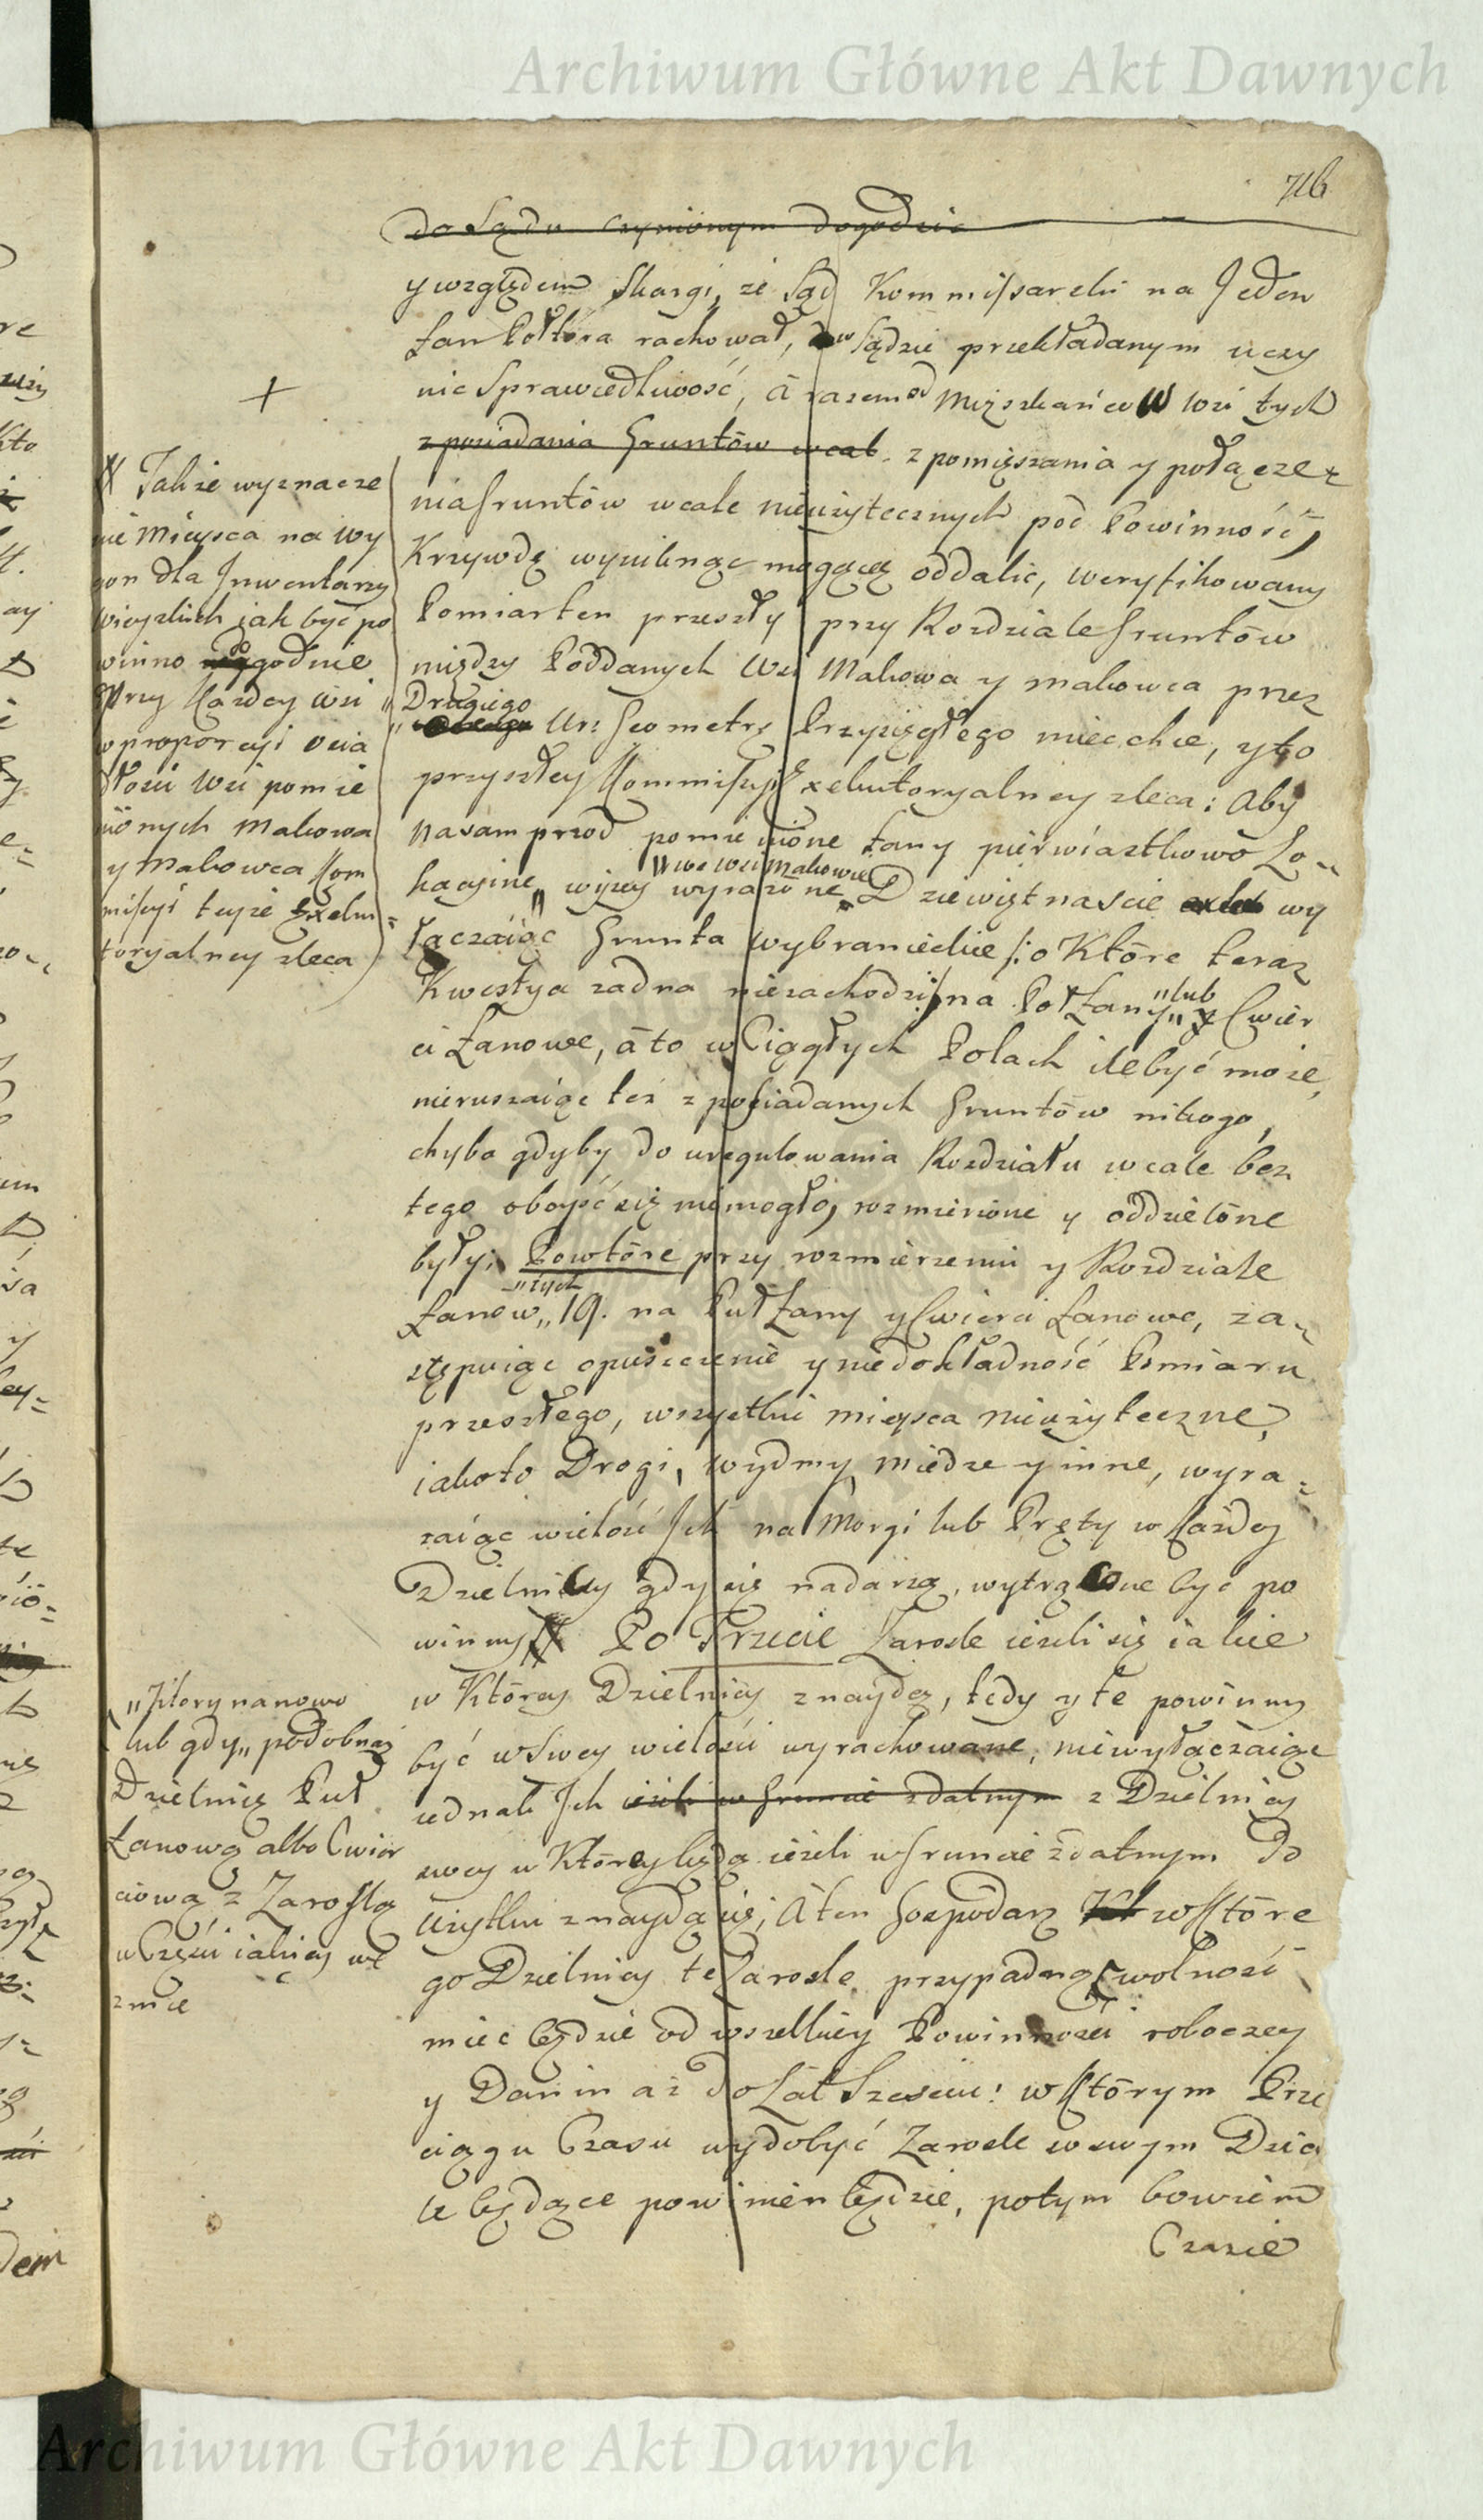 Archiwum Główne Akt Dawnych
716
do Sądu czynionym dogodzic
y względem skargi, że Sąd Kommissarski na Jeden
Łan Połtora rachował, w Sądzie przekładanym uczy
nic Sprawiedliwość, a razem od Mięszkańcow Wsi tych
z posiadania Gruntów wcal z pomięszania y połącze
nia Gruntów wcale nieużytecznych pod Powinność,
Krzywdę wyniknąc mogącą oddalic, weryfikowany
Pomiar ten przeszły przy Rozdziale Gruntów
między Poddanych Wsi Makowa y makowca przez
Drugiego
Ur: Geometrę Przysięgłego miec chce, y to
przyszłey Kommissyi Exekutoryalney zleca: Aby
Nasamprzod pomienióne Łany pierwiastkowo Lo-
"we Wsi Makowie
kacyine" wyżey wyrażone Dziewiętnascie wy
łączaiąc Grunta Wybranieckie /: o Które teraz
Kwestya zadna niezachodzi :/ na Poł Łany "lub" y Cwier
ci Łanowe, á to w Ciągłych Polach ile być może,
nieruszaiąc też z posiadanych Gruntów nikogo,
chyba gdyby do uregulowania Rozdziału wcale bez
tego obeyść się niemogło, rozmierióne y oddzielóne
były; Powtóre przy rozmierzeniu y Rozdziale
"tych
Łanow" 19. na Puł Łany y Cwierci Łanowe, za-
stępuiąc opuszczenie y niedokładność Pomiaru
przeszłego, wszystkie mieysca nieużyteczne,
iakoto Drogi, wydmy, miedze y inne, wyra=
zaiąc wielość Ich na Morgi lub Pręty w Każdey
Dzielnicy gdy się nadarzą, wytrącone byc po
winny Po Trzecie Zarosle ieżeli się iakie
w Którey Dzielnicy znaydą, tedy y te powinny
być w Swey wielości wyrachowane, niewyłączaiąc
iednak Ich ieżeli w Gruncie zdatnym z Dzielnicy
swey w Którey będą ieżeli w Gruncie zdatnym do
Użytku znaydą się; A ten Gospodarz w Które
go Dzielnicy te Zarosle przypadną, wolność
miec będzie od wszelkiey Powinności roboczey
y Danin aż do Lat Szesciu: w Którym Prze
ciągu Czasu wydobyć Zarosle w swym Dzia
le będące powinien będzie, potym bowiem
Czasie
+
Także wyznacze
nie Mieysca na Wy
gon dla Inwentarzy
Wieyskich jak być po
winno dogodnie
Przy Każdey Wsi
w proporcyi osia
dłości Wsi pomie
niónych Makowa
y Makowca Kom
missyi teyże Exeku=
toryalney zleca
"Ktory nanowo
lub gdy" podobną
Dzielnicę Puł
Łanową albo Cwier
ciową z Zaroslą
w Częsci iakiey we
zmie
Archiwum Główne Akt Dawnych